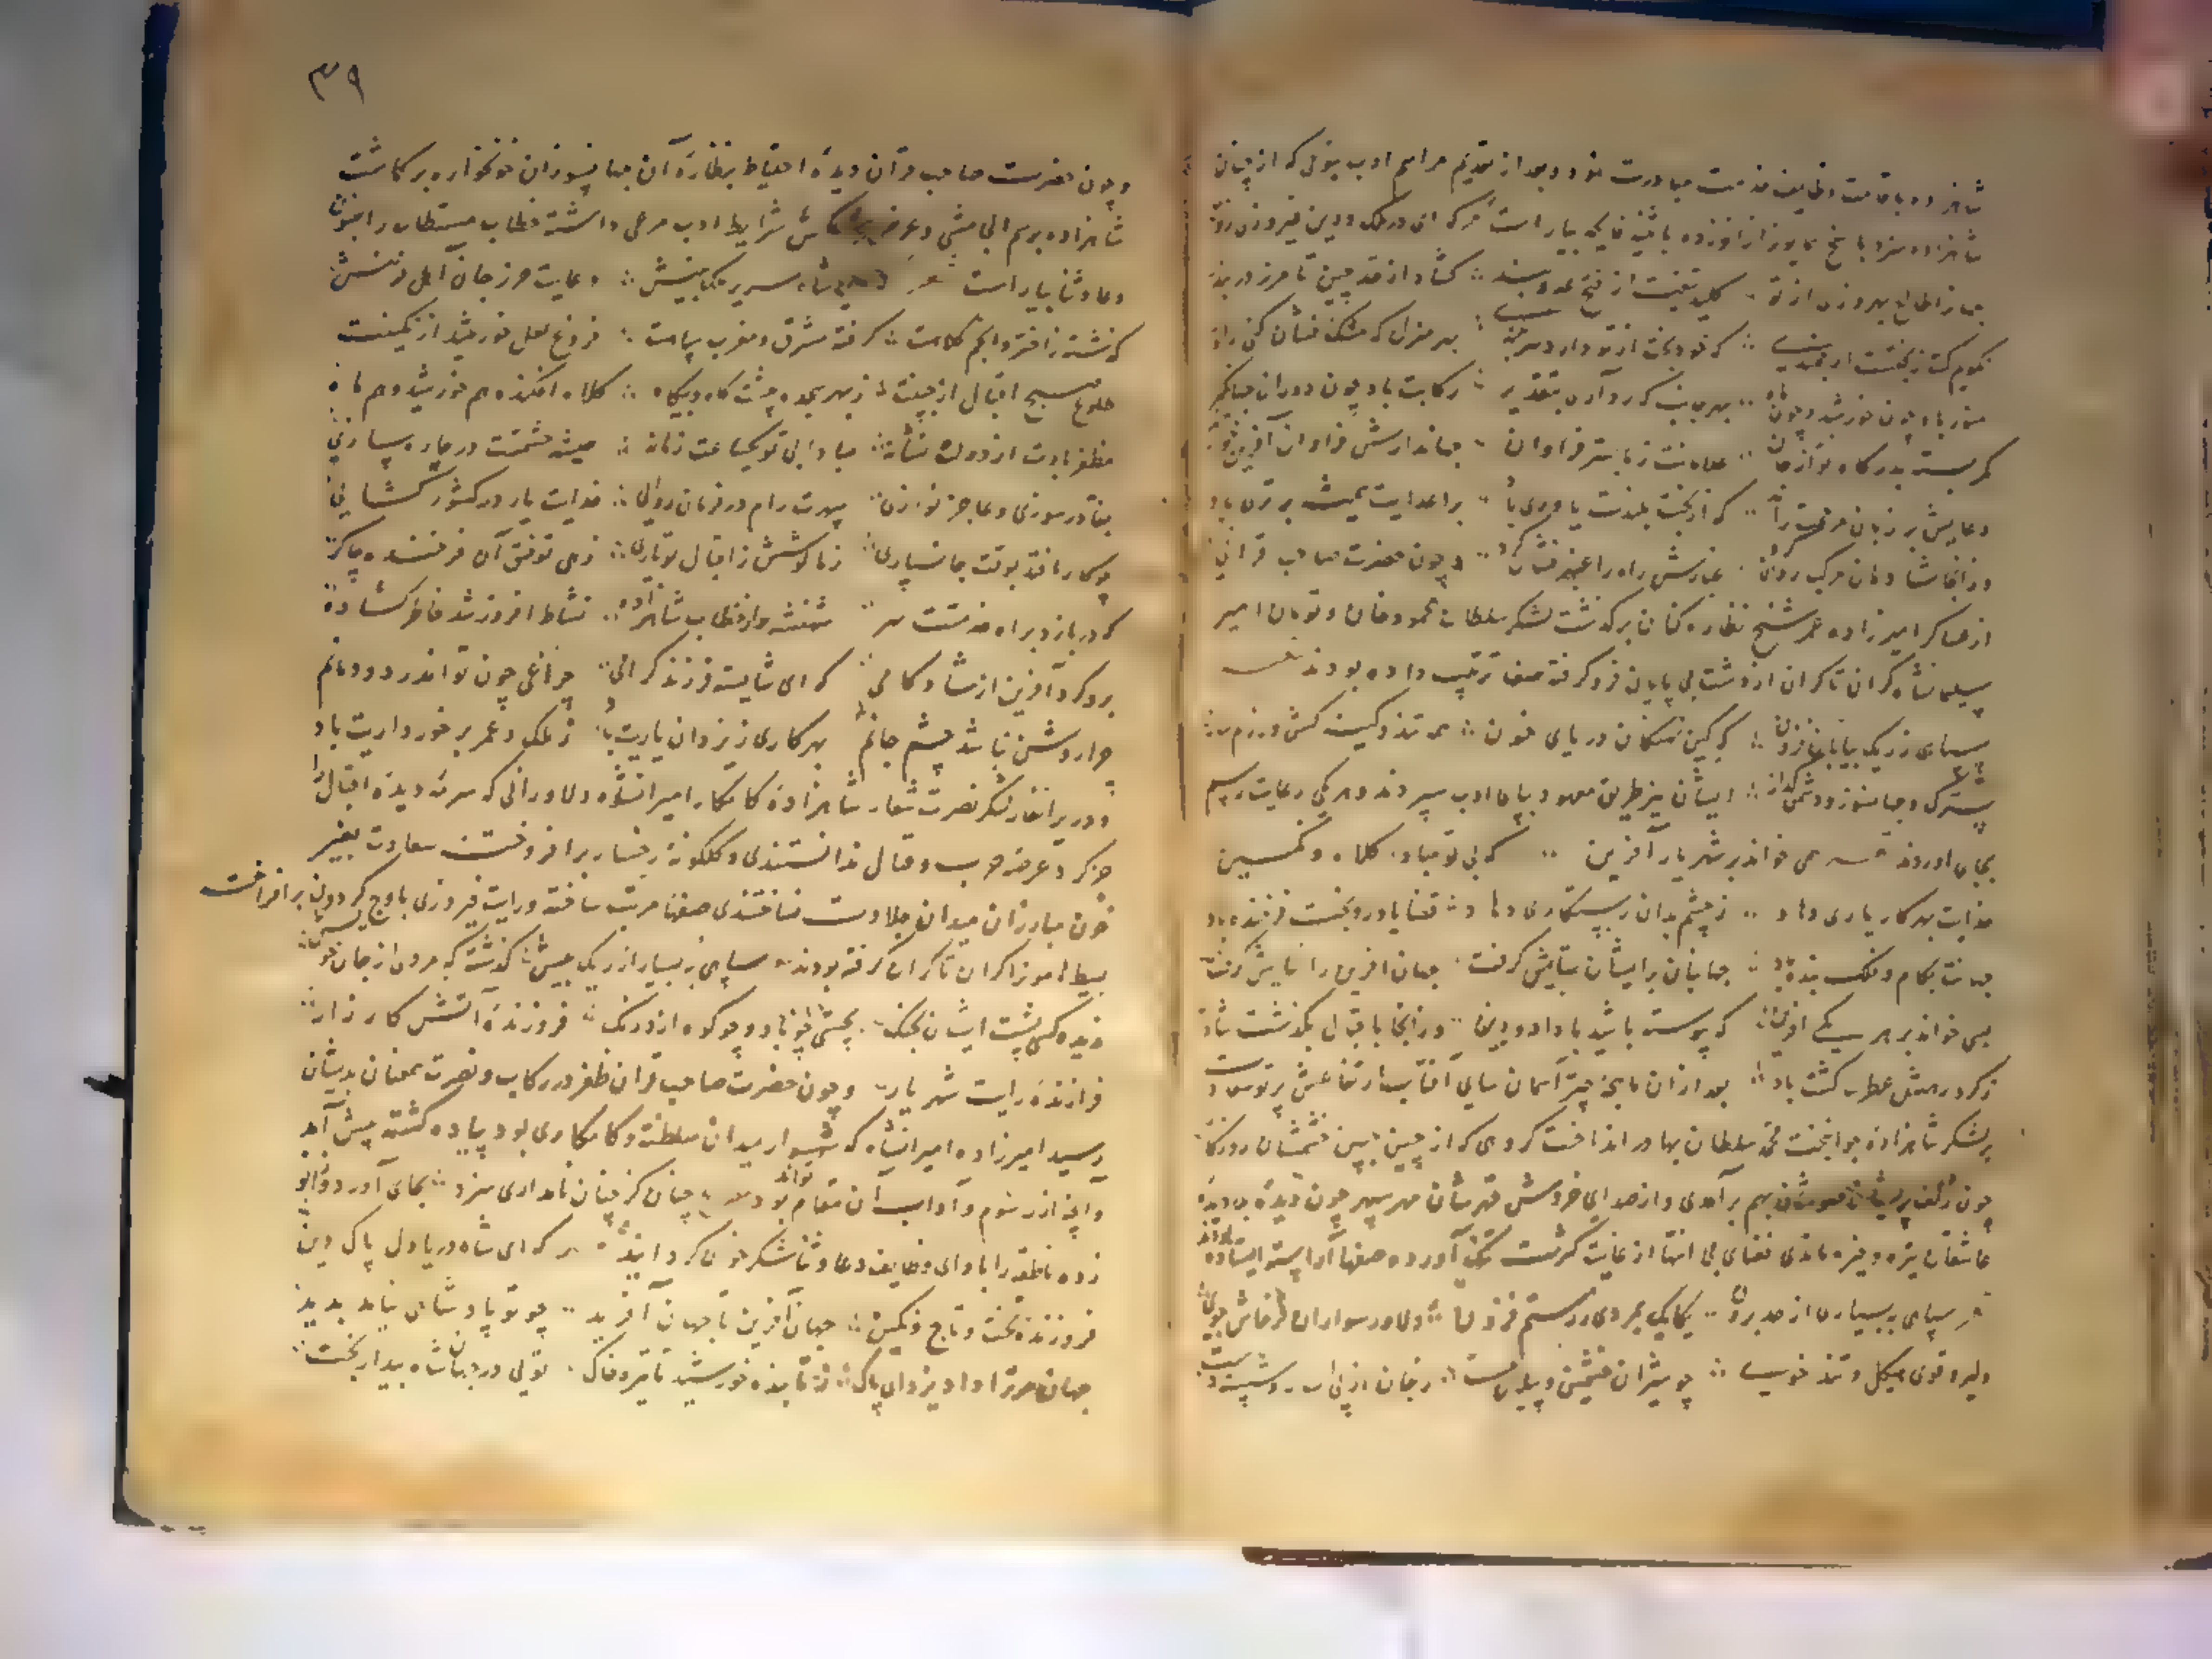 شاهزاده باقامت وظایف خدمت مبادرت نمود و بعد از تقدیم مراسم ادب بنوعی که از چنان
شاهزاده سزد پاسخ همایون را
جهانرا طالع بهروزی از تو کلید تیغت از فتح عدو بند گشاد از حد چین تا مرز دربند
منور باد چون خورشید و چون ماه بهر جانب که رو آری بتقدیر رکابت باد چون دوران جهانگیر
کمر بسته بدرگاه تو از جان غلامانت ز فراوان جهاندارش فراوان آفرین
دعایش بر زبان مرحمت راند که از بخت بلندت یاوری باد بر اعدایت همیشه برتری باد
وز آنجا شادمان مرکب روان کرد غبارش راه را عنبر فشان کرد و چون حضرت صاحب قرانی
از عساکر امیرزاده عمر شیخ نظاره کنان برگذشت لشکر سلطان محمود خان و تومان امیر
سلیمانشاه کران تا کران از دشت بی پایان فرو گرفته صف ترتیب داده بودند
سپاهی ز ریک بیابان فزون که کین نهنگان دریای خون همه تند و کینه کش و رزم ساز
سترک و جهانسوز و دشمن گداز ایشان نیز طریق معهود بپای ادب سپردند و هر یکی رعایت رسم
بجای آوردند همی خواند بر شهریار آفرین که بی تو مباد کلاه و نگین
خدایت بهر کار یاری دهاد ز چشم بدان رستگاری دهاد قضا یاور و بخت فرخنده باد
جهانت بکام و فلک بنده باد جهانبان بر ایشان ستایش گرفت جهان آفرین را نیایش گرفت
همی خواند بر هر یکی آفرین که پیوسته باشید با داد و دین وز آنجا باقبال بگذشت شاد
ز گرد رهش عطر گشت باد بعد از آن ماهچه چتر آسمان سای آفتاب ارتفاعش پرتو سعادت
بر لشکر شاهزاده جوانبخت محمد سلطان بهادر انداخت گروهی که از چین جبین خشمشان روزگار
چون زلف پریشان بهم برآمدی و از صدای خروش قهرشان مهر سپهر چون دیده
عاشقان تیره و خیره ماندی فضای بی انتها از غایت کثرت تنک آورده صفها آراسته ایستاده بودند
سپاهی ببسیاری از حد برون یکایک بمردی ز رستم فزون دلاور سواران پرخاش جوی
دلیر و قوی هیکل و تند خوی چو شیران خشمین و پیلان مست
۳۹
و چون حضرت صاحب قران دیده احتیاط بنظاره آن جهانسوزان خونخواره برگماشت
شاهزاده برسم الجامشی و عرض شرایط ادب مرعی داشته خطاب مستطاب را
دعا و ثنا بیاراست سریر ملک بینش دعایت حرز جان اهل
گذشته ز اختر و انجم کلاهت گرفته مشرق و مغرب سپاهت فروغ لعل خورشید از نگینت
طلوع صبح اقبال از جبینت ز بهر سجده پیشت گاه و بیگاه کلاه افکنده هم خورشید و هم ماه
مظفر بادت از دولت نشانه مبادا بی تو یکساعت زمانه همیشه حشمتت در چاره سازی
بقا در سوزی و عاجز نوازی سپهرت رام در فرمان روائی خدایت یار در کشور گشائی
چو کار افتد بوقت جانسپاری ز ما کوشش ز اقبال تو یاری زهی توفیق آن فرخنده چاکر
که دربازد براه خدمتت سر شهنشه را از خطاب شاهزاده نشاط افروز شد خاطر گشاده
برو کرد آفرین از شادکامی که ای شایسته فرزند گرامی چراغی چون تو اندر دودمانم
چرا روشن نباشد چشم جانم بهر کاری ز یزدان یاریت باد ز ملک و عمر برخورداریت باد
و در برانغار لشکر نصرت شعار شاهزاده کامکار امیرانشاه و دلاورانی که سرمه دیده اقبال را
جز گرد عرصه حرب و قتال ندانستندی و گلگونه رخسار برافروختن سعادت بغیر
خون مبارزان میدان جلادت نساختندی صفها مرتب ساخته و رایت فیروزی باوج گردون برافراخت
بسیط هامون را کران تا کران گرفته بودند سپاهی ببسیاری از ریک بیش گذشته که مردی از جان خویش
ندیده کسی پشت ایشان بجنک بجستن چو باد و چو کوه از درنگ فروزنده آتش کارزار
فرازنده رایت شهریار و چون حضرت صاحب قران ظفر در رکاب و نصرت همعنان بدیشان
رسید امیرزاده امیرانشاه که شهسوار میدان سلطنت و کامکاری بود پیاده گشته پیش آمد
و آنچه از رسوم و آداب آن مقام تواند بود چنان کز چنان نامداری سزد بجای آورد و زانو
زده ناطقه را بادای وظایف دعا و ثنا شکرخوای گردانید که ای شاه دریا دل پاک دین
فروزنده تخت و تاج و نگین جهان آفرین تا جهان آفرید چو تو پادشاهی نیامد پدید
جهان مر ترا داد یزدان پاک ز تابنده خورشید تا تیره خاک توئی در جهان شاه بیدار بخت